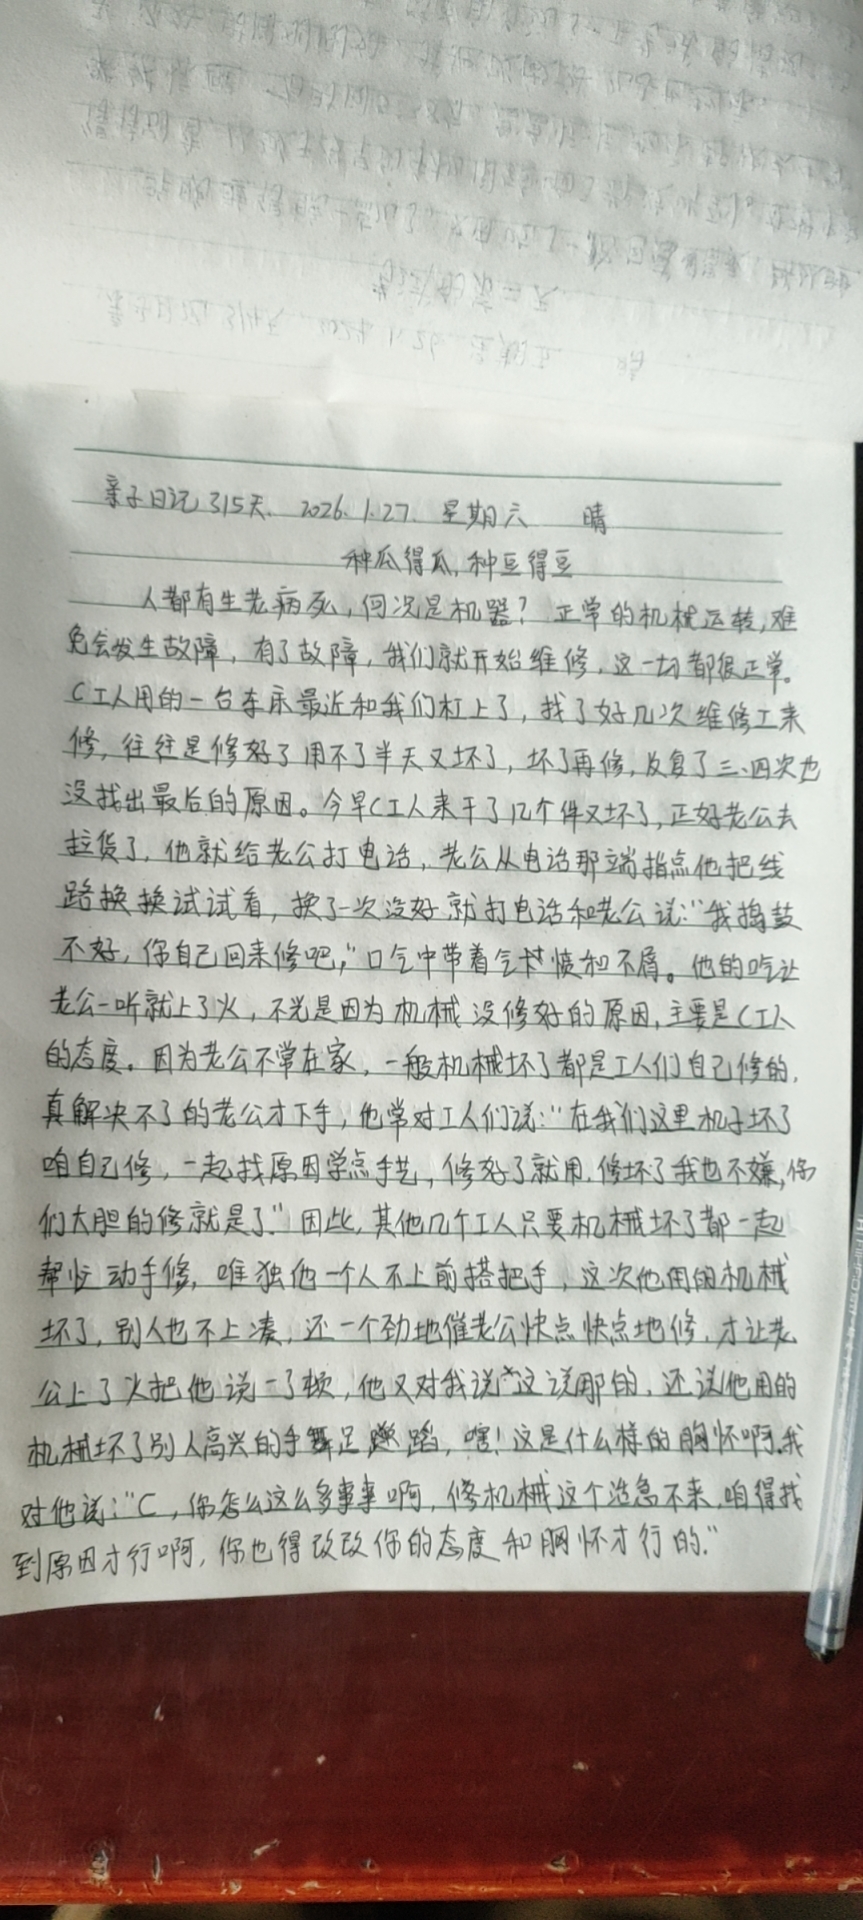 亲子日记315天. 2026.1.27. 星期六 晴
种瓜得瓜,种豆得豆
人都有生老病死,何况是机器?正常的机械运转,难
免会发生故障,有了故障,我们就开始维修,这一切都很正常。
C工人用的一台车床最近和我们杠上了,找了好几次维修工来
修,往往是修好了用不了半天又坏了,坏了再修,反复了三、四次也
没找出最后的原因。今早C工人来干了几个件又坏了,正好老公去
拉货了,他就给老公打电话,老公从电话那端指点他把线
路换换试试看,换了一次没好就打电话和老公说:“我捣鼓
不好,你自己回来修吧,”口气中带着气愤和不屑。他的吃让
老公一听就上了火,不光是因为机械没修好的原因,主要是C工人
的态度。因为老公不常在家,一般机械坏了都是工人们自己修的,
真解决不了的老公才下手,他常对工人们说:“在我们这里机子坏了
咱自己修,一起找原因学点手艺,修好了就用,修坏了我也不嫌,你
们大胆的修就是了”因此,其他几个工人只要机械坏了都一起
帮忙动手修,唯独他一个人不上前搭把手,这次他用的机械
坏了,别人也不上凑,还一个劲地催老公快点快点地修,才让老
公上了火把他说一了顿,他又对我说“这说那的,还说他用的
机械坏了别人高兴的手舞足蹈,嗐!这是什么样的胸怀啊,我
对他说:“C,你怎么这么多事事啊,修机械这个活急不来,咱得找
到原因才行啊,你也得改改你的态度和胸怀才行的.”